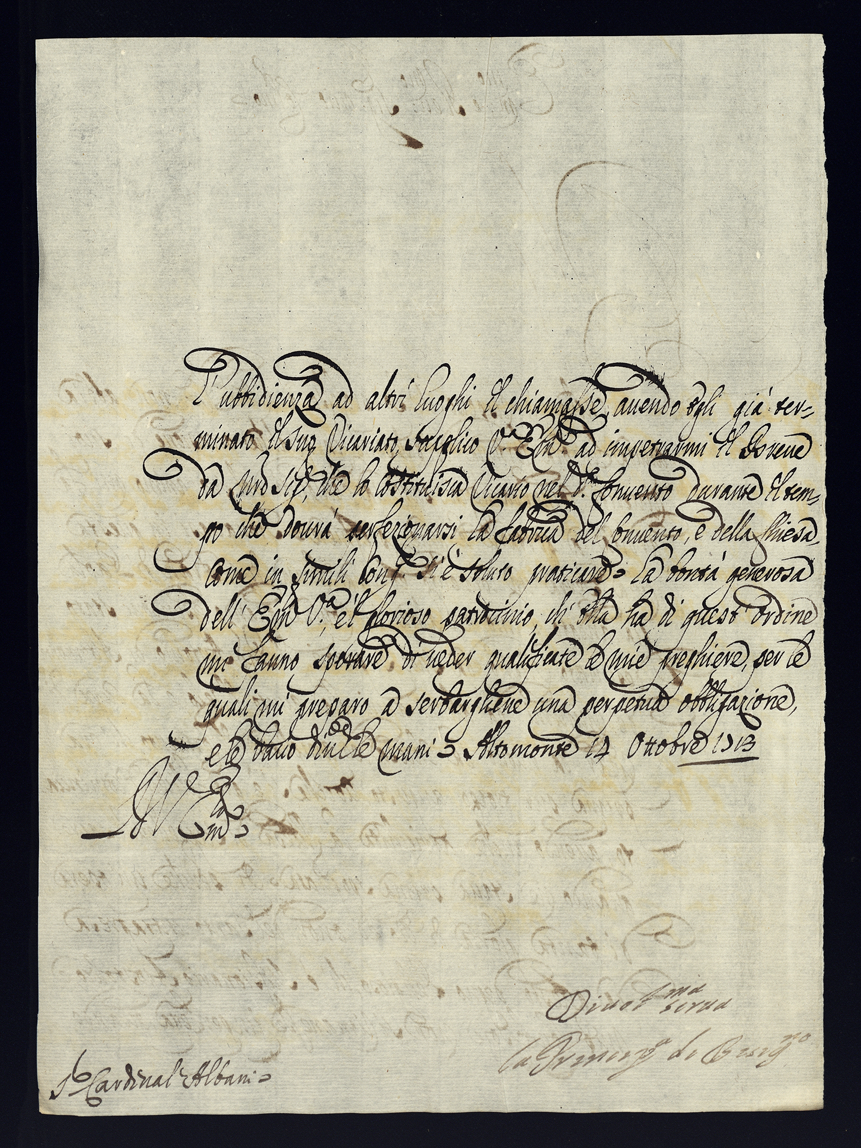 L'ubbidienza ad altri luoghi il chiamasse, auendo egli già ter-
minato il suo Vicariato, supplico V. Em.ᵃ ad impetrarmi il Breue
da Nrō Sigʳᵉ, che lo costituisca Vicario nel dᵒ Conuento durante il tem-
po che dourà perfezionarsi la fabrica del Conuento, e della Chiesa,
come in simili è soluto praticare. La bontà generosa
dell' Em.ᵃ Vᵃ, e 'l glorioso patrocinio, ch' ella ha di quest' ordine
me fanno sperare di ueder qualificate le mie preghiere, per le
quali mi preparo a serbargliene una perpetua obbligazione,
e le bacio diuᵗᵉ le mani. Altomonte 17 Ottobre 1713
D V Em.ᵃ
Diuotᵐᵃ serua
la Prinⁱᵖᵃ di
Sʳ Cardinal Albani